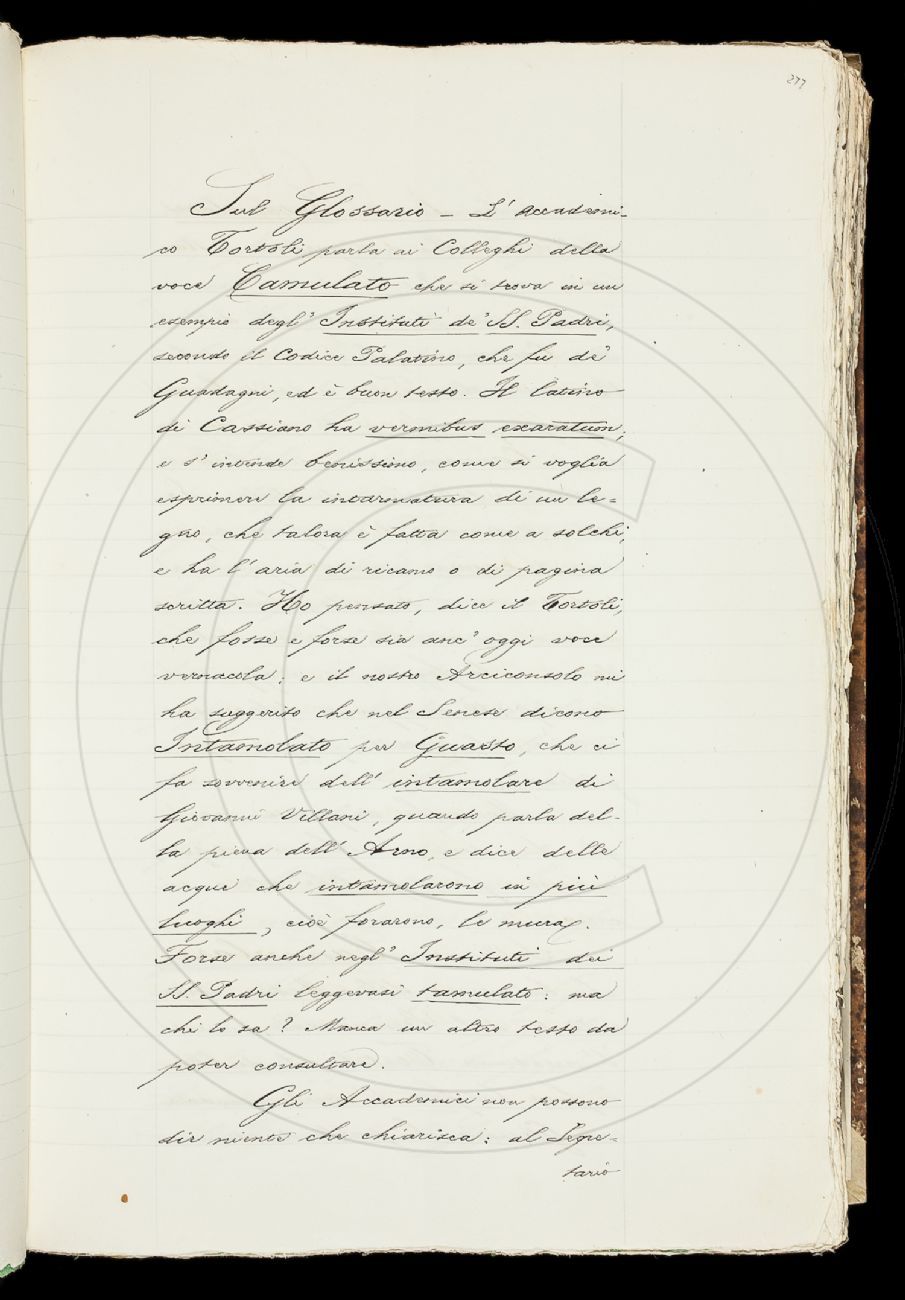 277
Sul Glossario – L'Accademi-
co Tortoli parla ai Colleghi della
voce Camulato che si trova in un
esempio degl'Instituti de'SS. Padri,
secondo il Codice Palatino, che fu de'
Guadagni, ed è buon testo. Il latino
di Cassiano ha vermibus exaratum;
e s'intende benissimo, come si voglia
esprimere la intarmatura di un le-
gno, che talora è fatta come a solchi,
e ha l'aria di ricamo o di pagina
scritta. Ho pensato, dice il Tortoli,
che fosse e forse sia anc'oggi voce
vernacola: e il nostro Arciconsolo mi
ha suggerito che nel Senese dicono
Intamolato per Guasto, che ci
fa sovvenire dell'intamolare di
Giovanni Villani, quando parla del-
la piena dell'Arno, e dice delle
acque che intamolarono in più
luoghi, cioè forarono, le mura.
Forse anche negl'Instituti dei
SS. Padri leggevasi tamulato: ma
chi lo sa? Manca un altro testo da
poter consultare.
Gli Accademici non possono
dir niente che chiarisca: al Segre-
tario